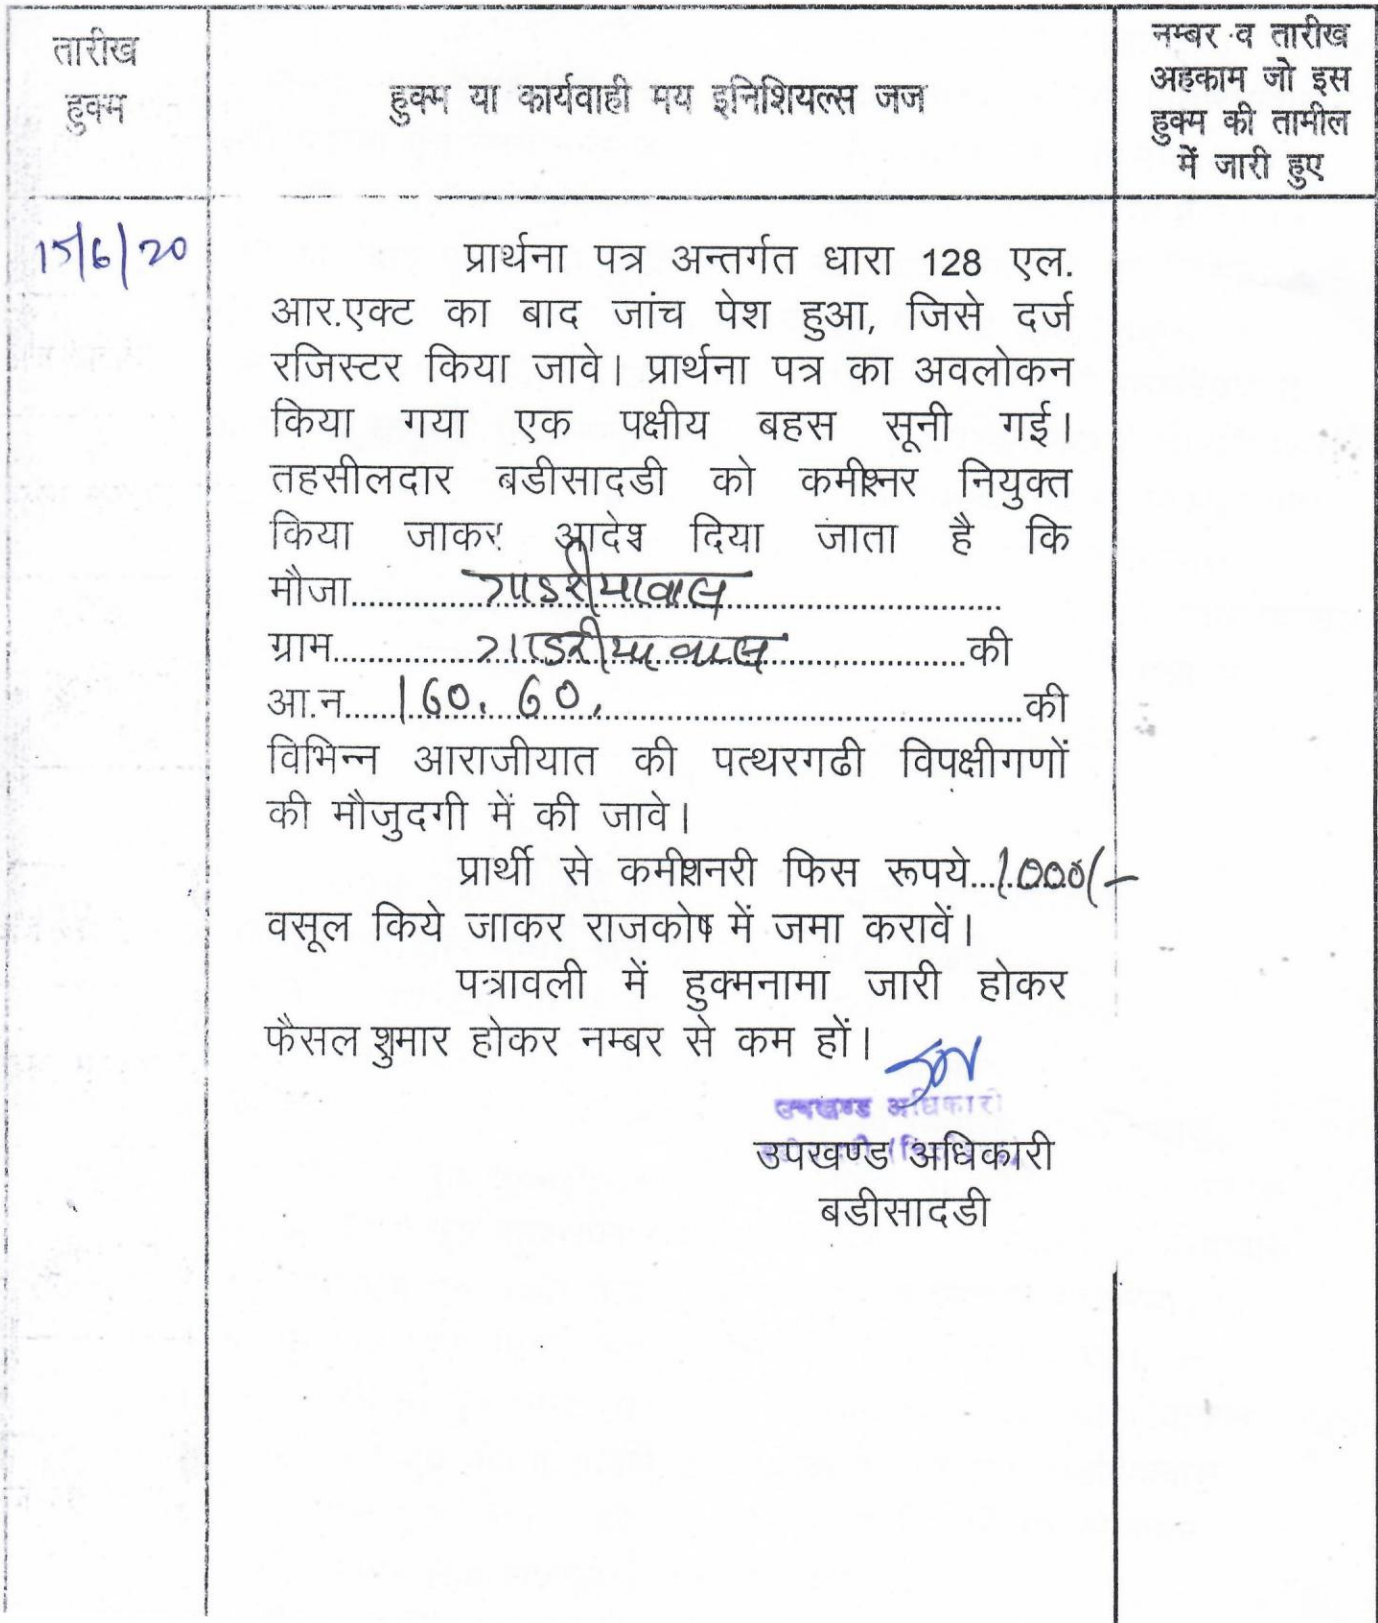 तारीख
हुक्म
हुक्म या कार्यवाही मय इनिशियल्स जज
नम्बर व तारीख
अहकाम जो इस
हुक्म की तामील
में जारी हुए
15/6/20
प्रार्थना पत्र अन्तर्गत धारा 128 एल.
आर.एक्ट का बाद जांच पेश हुआ, जिसे दर्ज
रजिस्टर किया जावे। प्रार्थना पत्र का अवलोकन
किया गया एक पक्षीय बहस सूनी गई।
तहसीलदार बडीसादडी को कमीश्नर नियुक्त
किया जाकर आदेश दिया जाता है कि
मौजा.....गाडरीयावास.....
ग्राम.....गाडरीयावास.....की
आ.न.....160. 60,.....की
विभिन्न आराजीयात की पत्थरगढी विपक्षीगणों
की मौजुदगी में की जावे।
प्रार्थी से कमीशनरी फिस रूपये...1000/-
वसूल किये जाकर राजकोष में जमा करावें।
पत्रावली में हुक्मनामा जारी होकर
फैसल शुमार होकर नम्बर से कम हों।
उपखण्ड अधिकारी
उपखण्ड अधिकारी
बडीसादडी